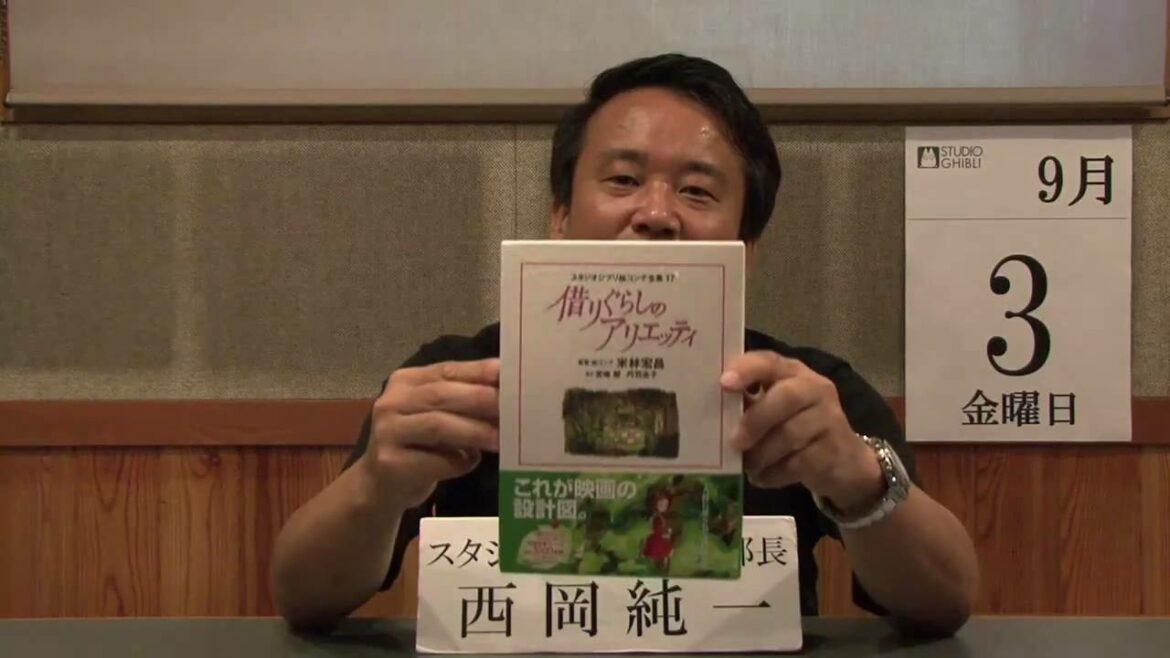 STUDIO
GHIBLI
9月
3
金曜日
スタジオジブリ絵コンテ全集17
借りぐらしの
アリエッティ
米林宏昌
これが映画の
設計図。
スタジ
部長
西岡純一